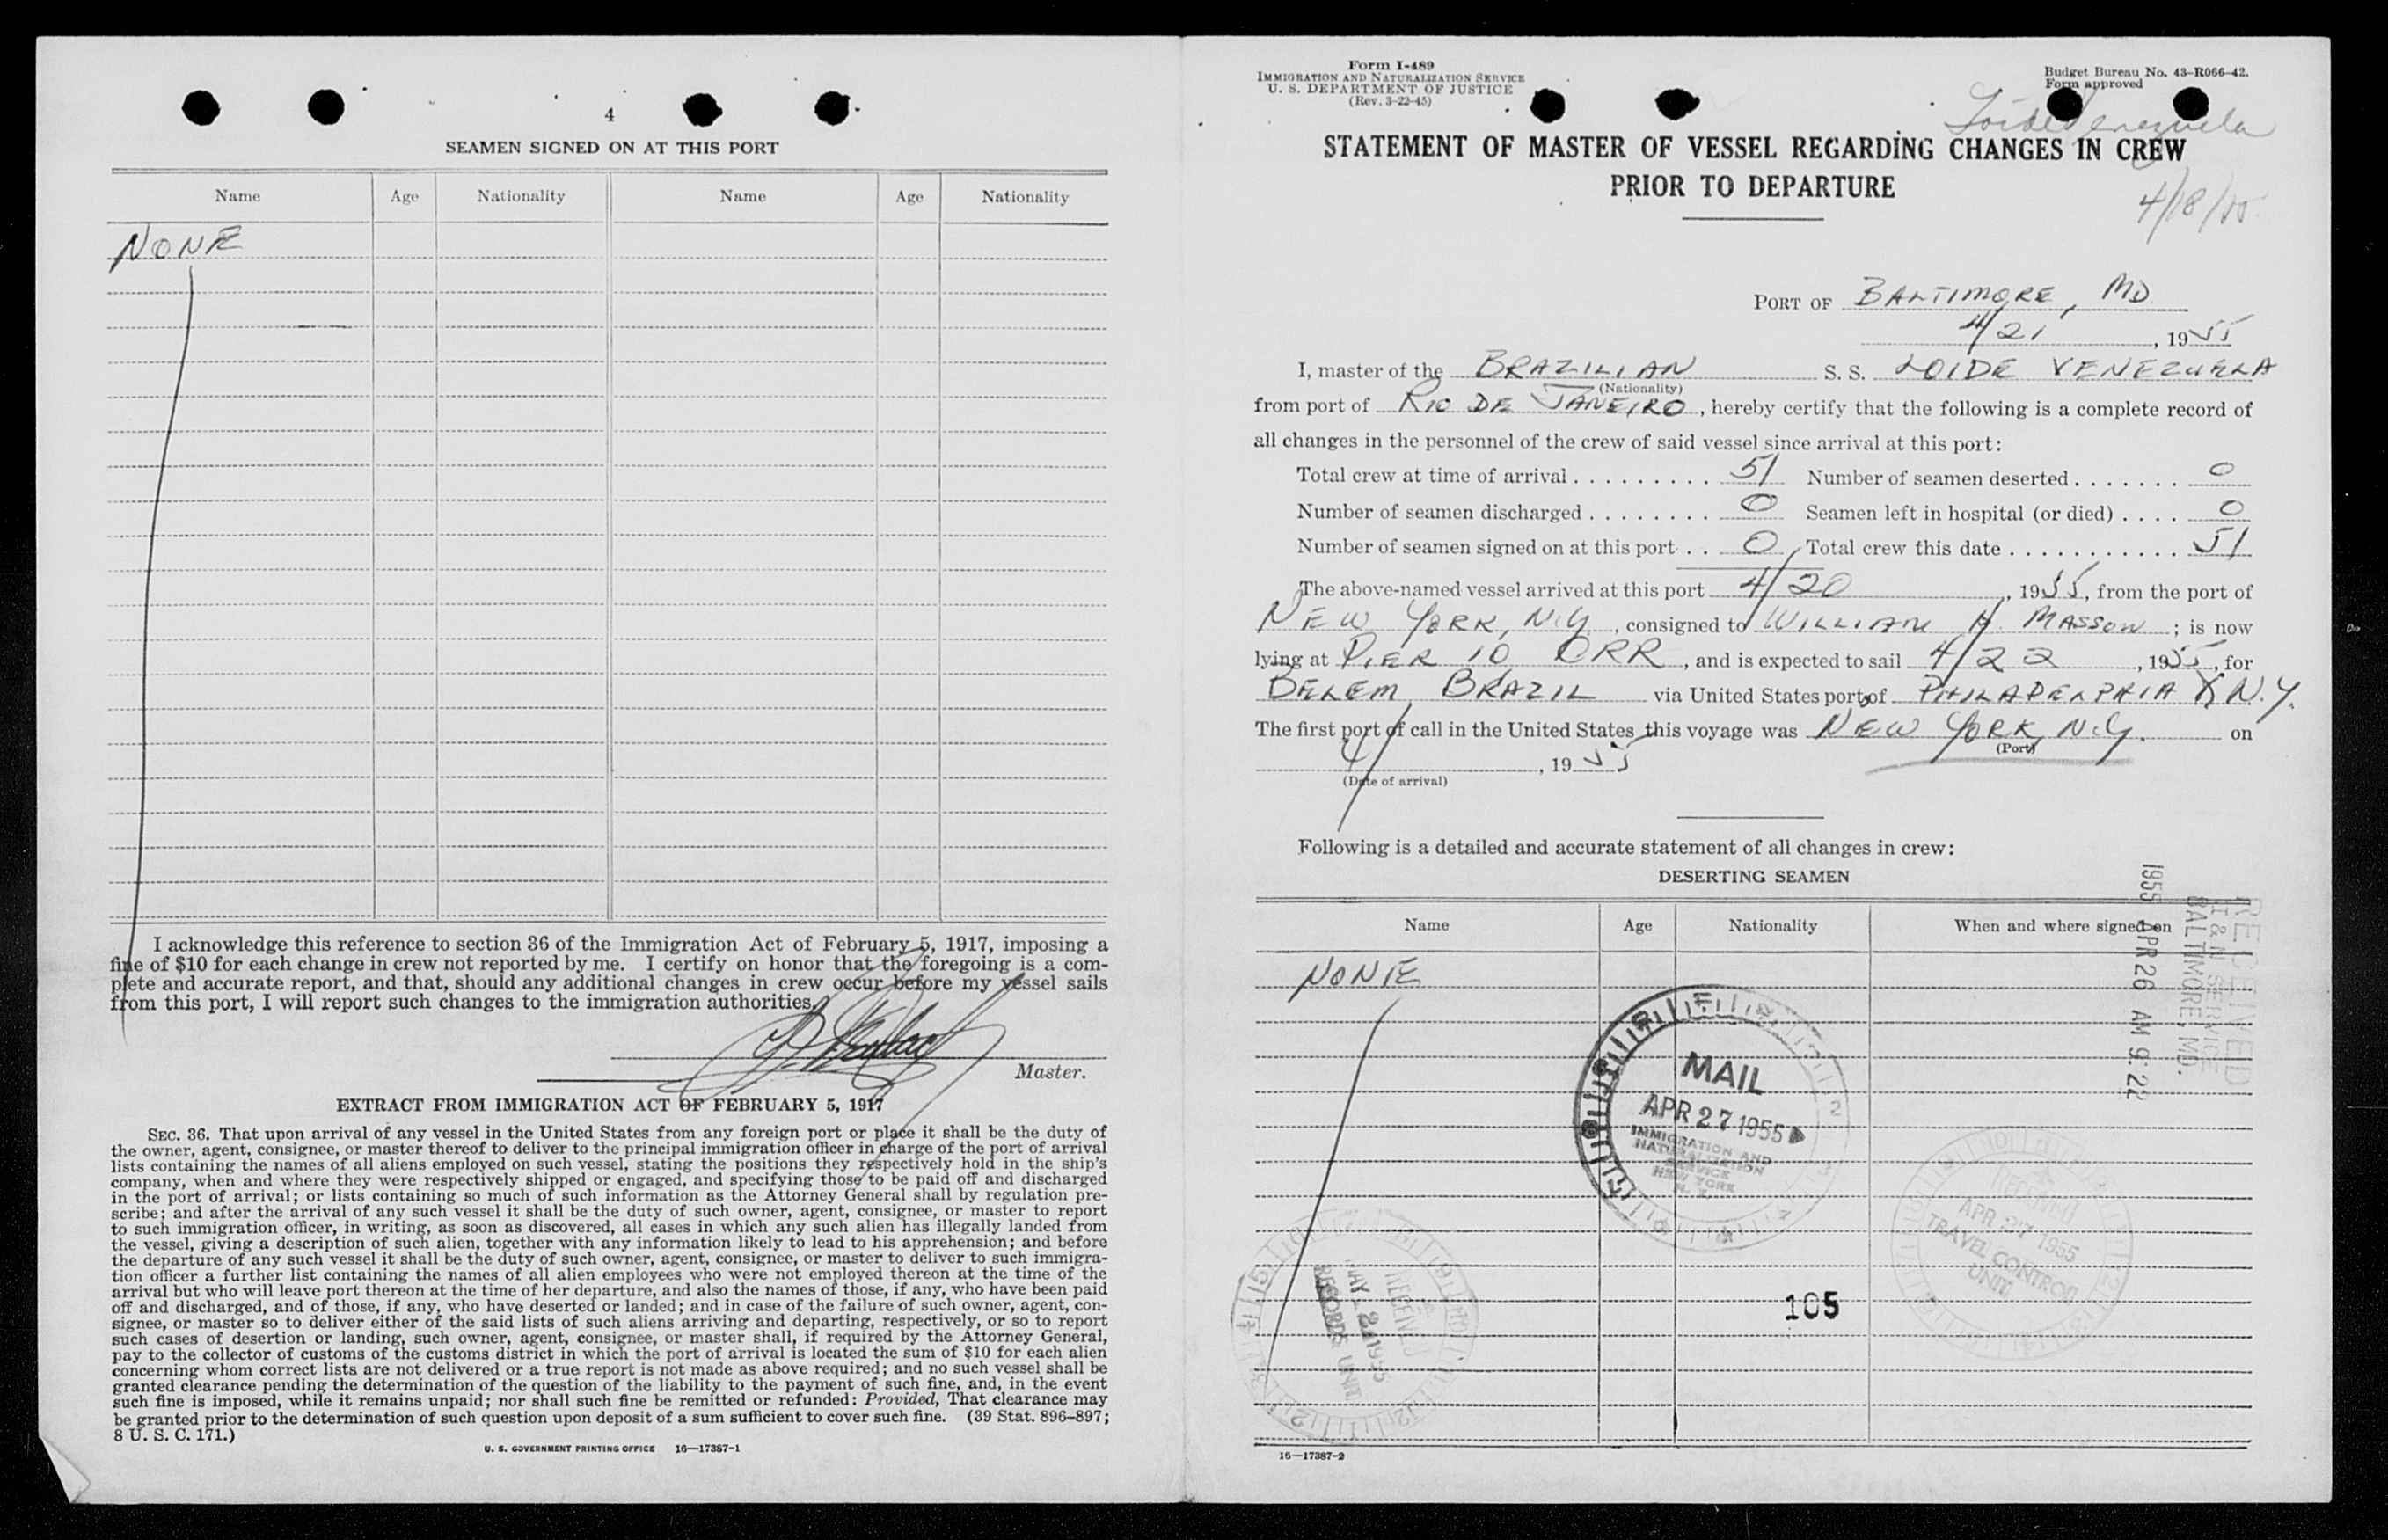 4
SEAMEN SIGNED ON AT THIS PORT
Name Age Nationality Name Age Nationality
NONE
I acknowledge this reference to section 36 of the Immigration Act of February 5, 1917, imposing a
fine of $10 for each change in crew not reported by me. I certify on honor that the foregoing is a com-
plete and accurate report, and that, should any additional changes in crew occur before my vessel sails
from this port, I will report such changes to the immigration authorities.
Master.
EXTRACT FROM IMMIGRATION ACT OF FEBRUARY 5, 1917
SEC. 36. That upon arrival of any vessel in the United States from any foreign port or place it shall be the duty of
the owner, agent, consignee, or master thereof to deliver to the principal immigration officer in charge of the port of arrival
lists containing the names of all aliens employed on such vessel, stating the positions they respectively hold in the ship's
company, when and where they were respectively shipped or engaged, and specifying those to be paid off and discharged
in the port of arrival; or lists containing so much of such information as the Attorney General shall by regulation pre-
scribe; and after the arrival of any such vessel it shall be the duty of such owner, agent, consignee, or master to report
to such immigration officer, in writing, as soon as discovered, all cases in which any such alien has illegally landed from
the vessel, giving a description of such alien, together with any information likely to lead to his apprehension; and before
the departure of any such vessel it shall be the duty of such owner, agent, consignee, or master to deliver to such immigra-
tion officer a further list containing the names of all alien employees who were not employed thereon at the time of the
arrival but who will leave port thereon at the time of her departure, and also the names of those, if any, who have been paid
off and discharged, and of those, if any, who have deserted or landed; and in case of the failure of such owner, agent, con-
signee, or master so to deliver either of the said lists of such aliens arriving and departing, respectively, or so to report
such cases of desertion or landing, such owner, agent, consignee, or master shall, if required by the Attorney General,
pay to the collector of customs of the customs district in which the port of arrival is located the sum of $10 for each alien
concerning whom correct lists are not delivered or a true report is not made as above required; and no such vessel shall be
granted clearance pending the determination of the question of the liability to the payment of such fine, and, in the event
such fine is imposed, while it remains unpaid; nor shall such fine be remitted or refunded: Provided, That clearance may
be granted prior to the determination of such question upon deposit of a sum sufficient to cover such fine. (39 Stat. 896–897;
8 U. S. C. 171.)
U. S. GOVERNMENT PRINTING OFFICE 16—17387-1
Form I-489
IMMIGRATION AND NATURALIZATION SERVICE
U. S. DEPARTMENT OF JUSTICE
(Rev. 3-22-45)
Budget Bureau No. 43-R066-42.
Form approved
Loide Venezuela
STATEMENT OF MASTER OF VESSEL REGARDING CHANGES IN CREW
PRIOR TO DEPARTURE
4/18/55
PORT OF BALTIMORE, MD
4/21, 1955
I, master of the BRAZILIAN S. S. LOIDE VENEZUELA
(Nationality)
from port of RIO DE JANEIRO, hereby certify that the following is a complete record of
all changes in the personnel of the crew of said vessel since arrival at this port:
Total crew at time of arrival . . . . . . . . . 51 Number of seamen deserted . . . . . . . 0
Number of seamen discharged . . . . . . . . 0 Seamen left in hospital (or died) . . . . 0
Number of seamen signed on at this port . . 0 Total crew this date . . . . . . . . . . . 51
The above-named vessel arrived at this port 4/20, 1955, from the port of
NEW YORK, N.Y., consigned to WILLIAM H. MASSON; is now
lying at PIER 10 ORR, and is expected to sail 4/22, 1955, for
BELEM, BRAZIL via United States ports of PHILADELPHIA & N.Y.
The first port of call in the United States this voyage was NEW YORK, N.Y. on
(Port)
4/ , 1955
(Date of arrival)
Following is a detailed and accurate statement of all changes in crew:
DESERTING SEAMEN
Name Age Nationality When and where signed on
NONE
RECEIVED
I & N SERVICE
BALTIMORE, MD.
1955 APR 26 AM 9:22
MAIL
APR 27 1955
IMMIGRATION AND
NATURALIZATION
SERVICE
NEW YORK
N. Y.
RECEIVED
APR 27 1955
TRAVEL CONTROL
UNIT
RECEIVED
MAY 2 1955
RECORDS UNIT
105
16—17387-2